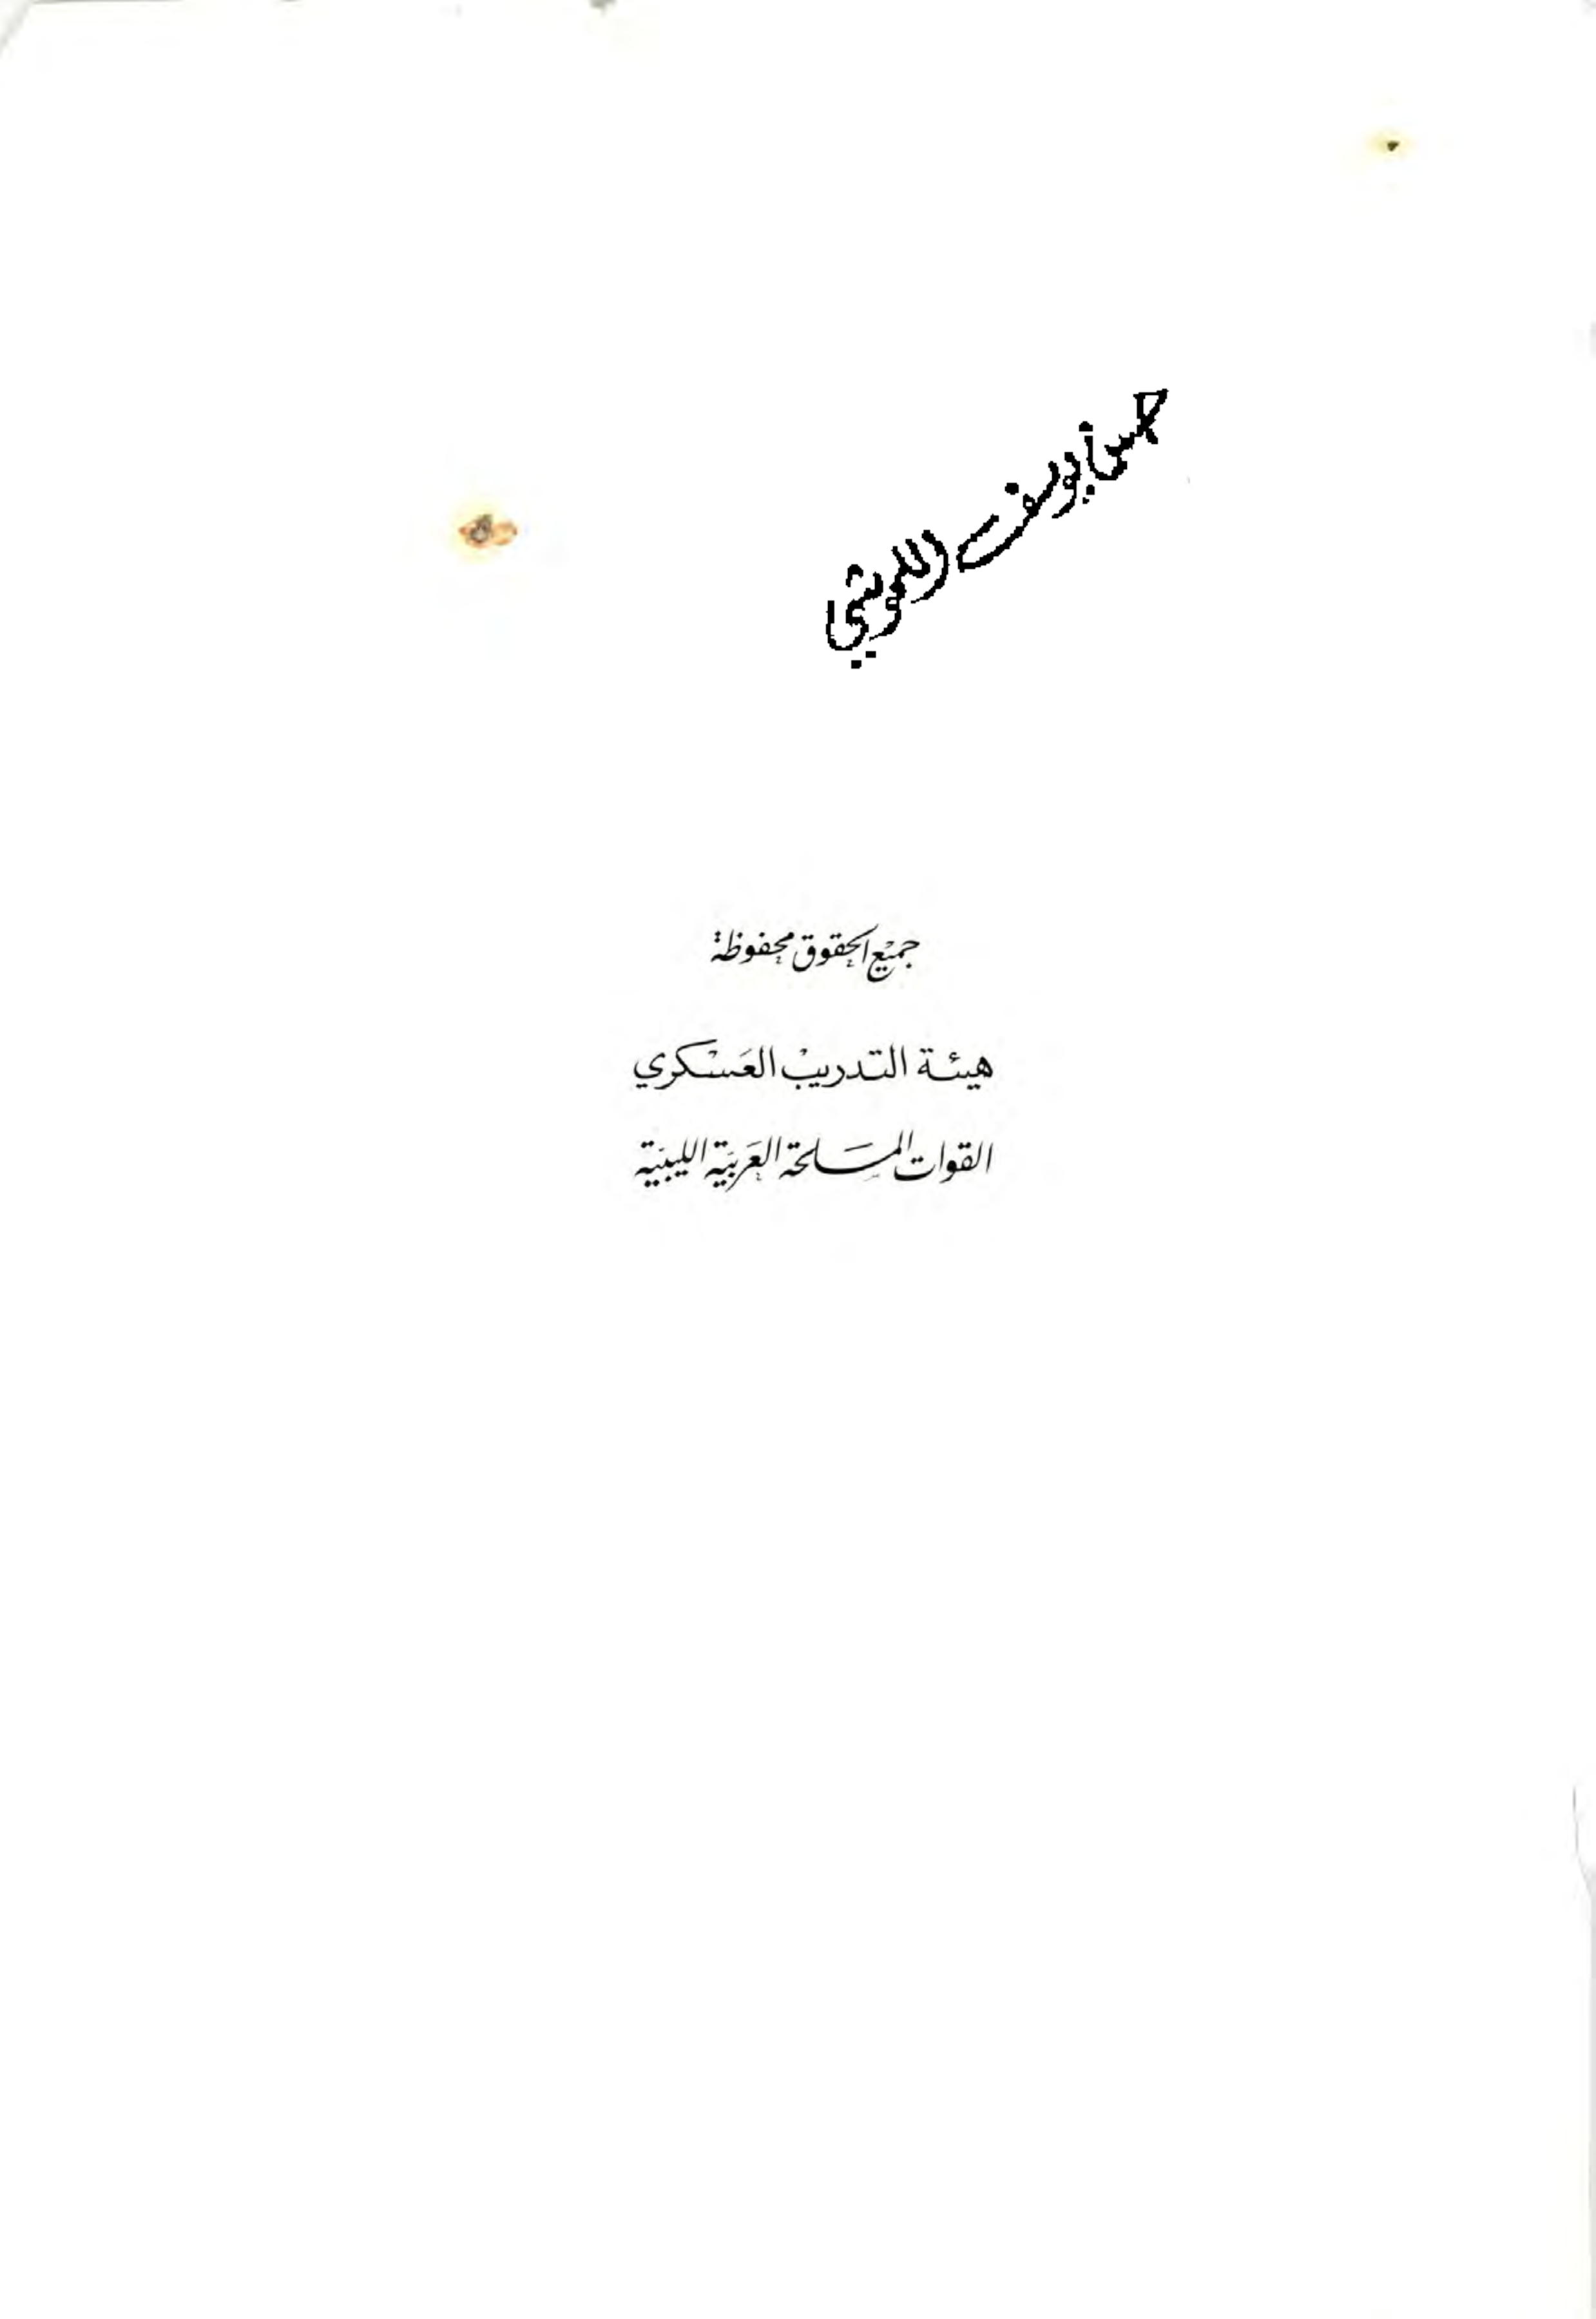 حسن يوسف اللويشي
جميع الحقوق محفوظة
هيئة التدريب العسكري
القوات المسلحة العربية الليبية